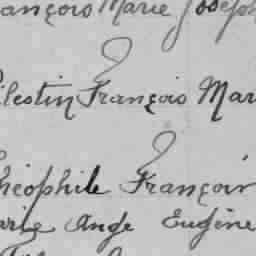 ançois Marie Joseph
élestin François Mar
héophile François
arie Ange Eugène